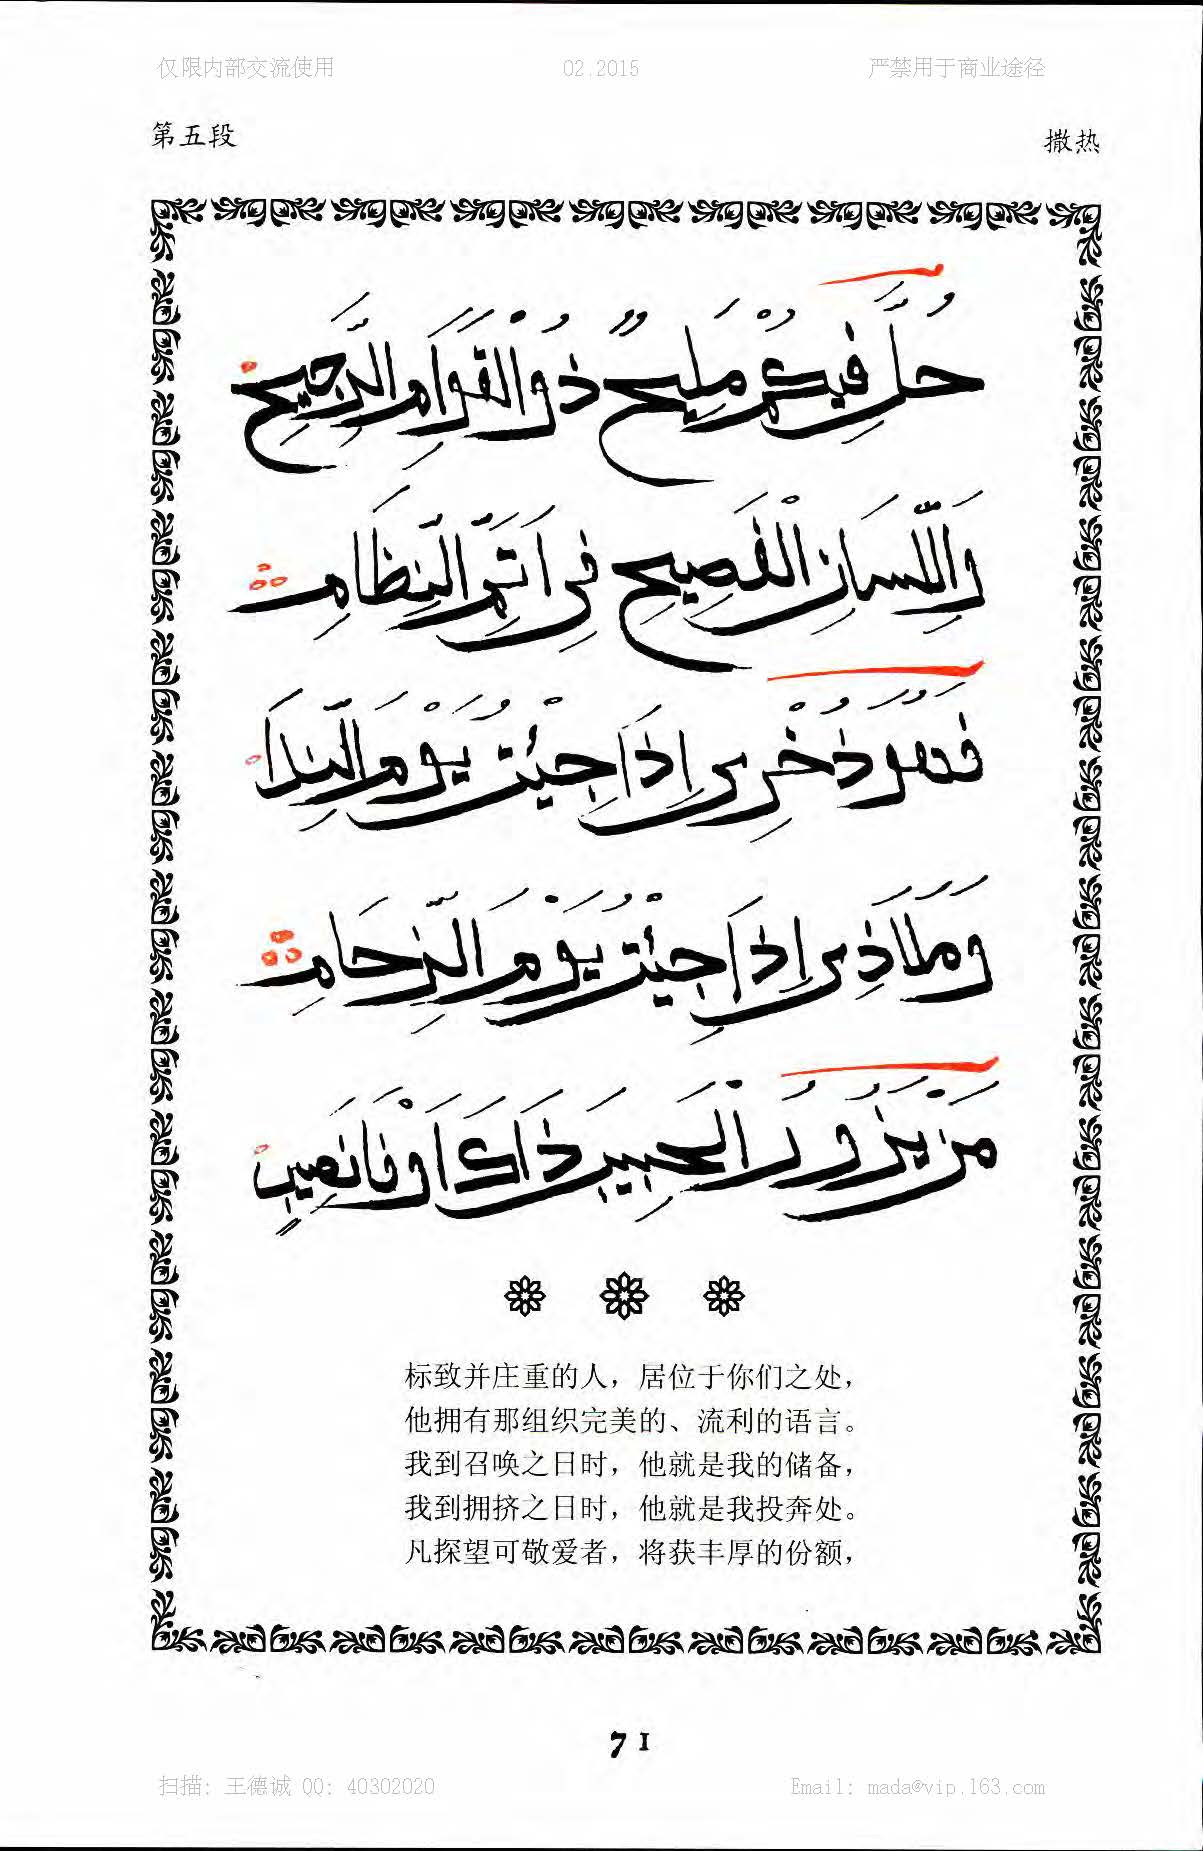 仅限内部交流使用 02.2015 严禁用于商业途径
第五段 撒热
حُلَّ فِيكُمْ مَلِيحٌ ذُو الْقَوَامِ الرَّجِيحِ
وَاللِّسَانِ الْفَصِيحِ فِي اَتَمِّ النِّظَامِ
فَهُوَ ذُخْرِي اِذَا جِئْتُ يَوْمَ النِّدَا
وَمَلَاذِي اِذَا جِئْتُ يَوْمَ الزِّحَامِ
مَنْ يَزُورُ الْحَبِيبَ ذَاكَ اَوْفَا نَصِيبٍ
标致并庄重的人，居位于你们之处，
他拥有那组织完美的、流利的语言。
我到召唤之日时，他就是我的储备，
我到拥挤之日时，他就是我投奔处。
凡探望可敬爱者，将获丰厚的份额，
71
扫描: 王德诚 QQ: 40302020 Email: mada@vip.163.com